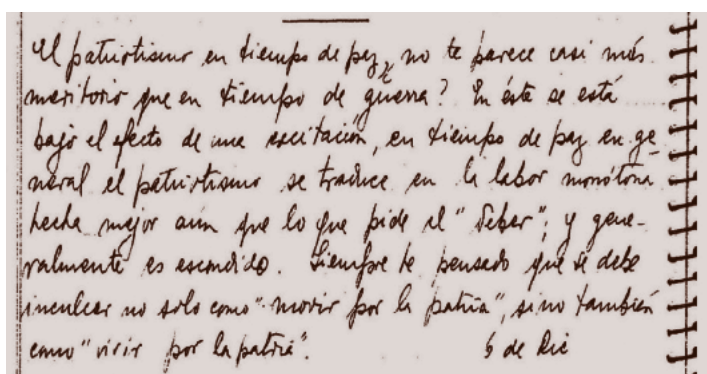 El patriotismo en tiempo de paz ¿ no te parece casi más
meritorio que en tiempo de guerra? En éste se está
bajo el efecto de una excitación, en tiempo de paz en ge
neral el patriotismo se traduce en la labor monótona
hecha mejor aún que lo que pide el "deber"; y gene-
ralmente es escondido. Siempre he pensado que se debe
inculcar no solo como "morir por la patria", sino también
como "vivir por la patria". 6 de Dic